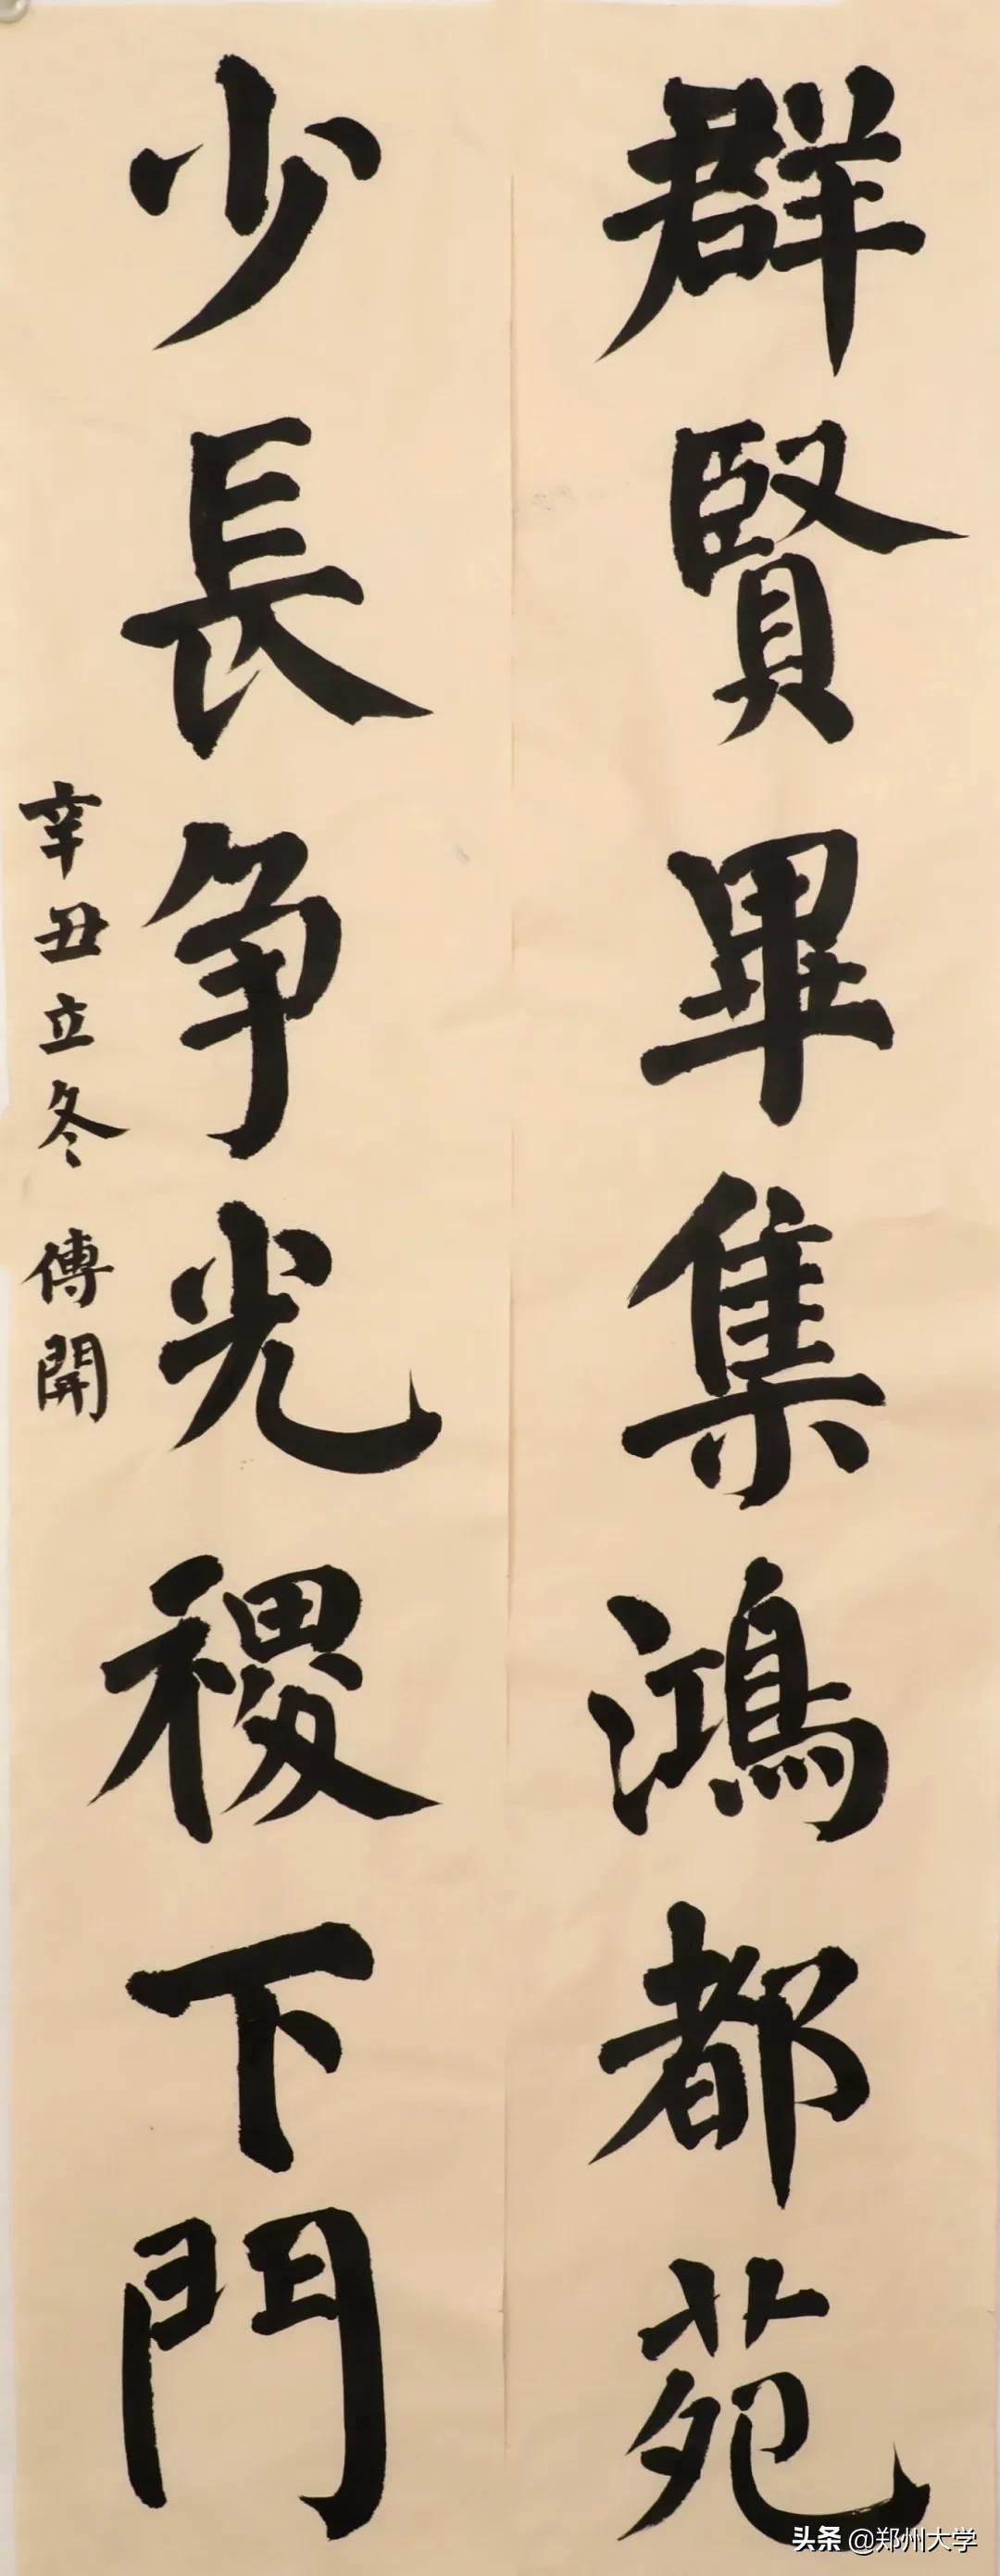 群賢畢集鴻都苑
少長争光稷下門
辛丑立冬 傳開
头条 @郑州大学